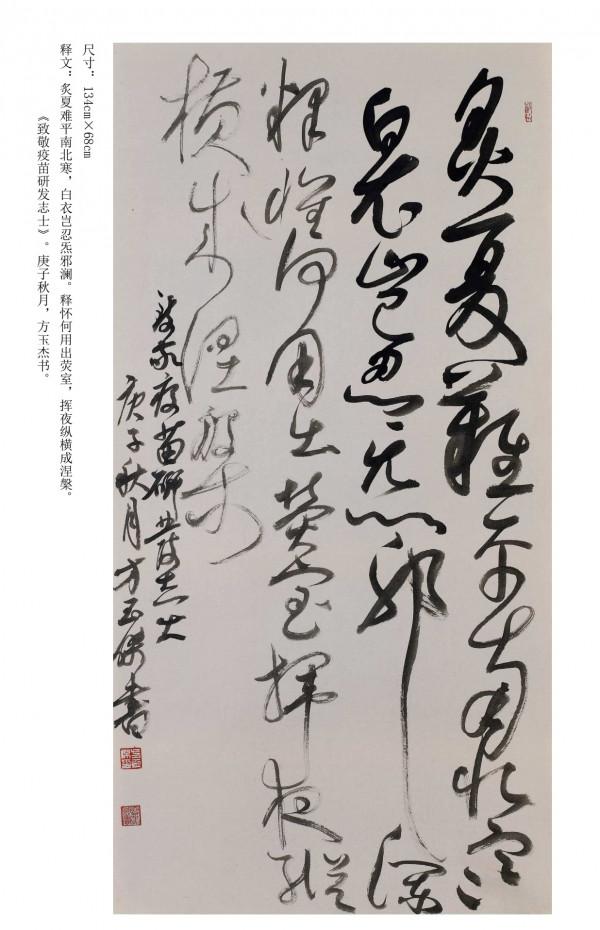 炙夏難平南北寒
白衣岂忍炁邪澜
释怀何用出荧室挥夜纵
横成涅槃
致敬疫苗研发志士
庚子秋月方玉杰书
尺寸：134cm×68cm
释文：炙夏难平南北寒，白衣岂忍炁邪澜。释怀何用出荧室，挥夜纵横成涅槃。
《致敬疫苗研发志士》。庚子秋月，方玉杰书。